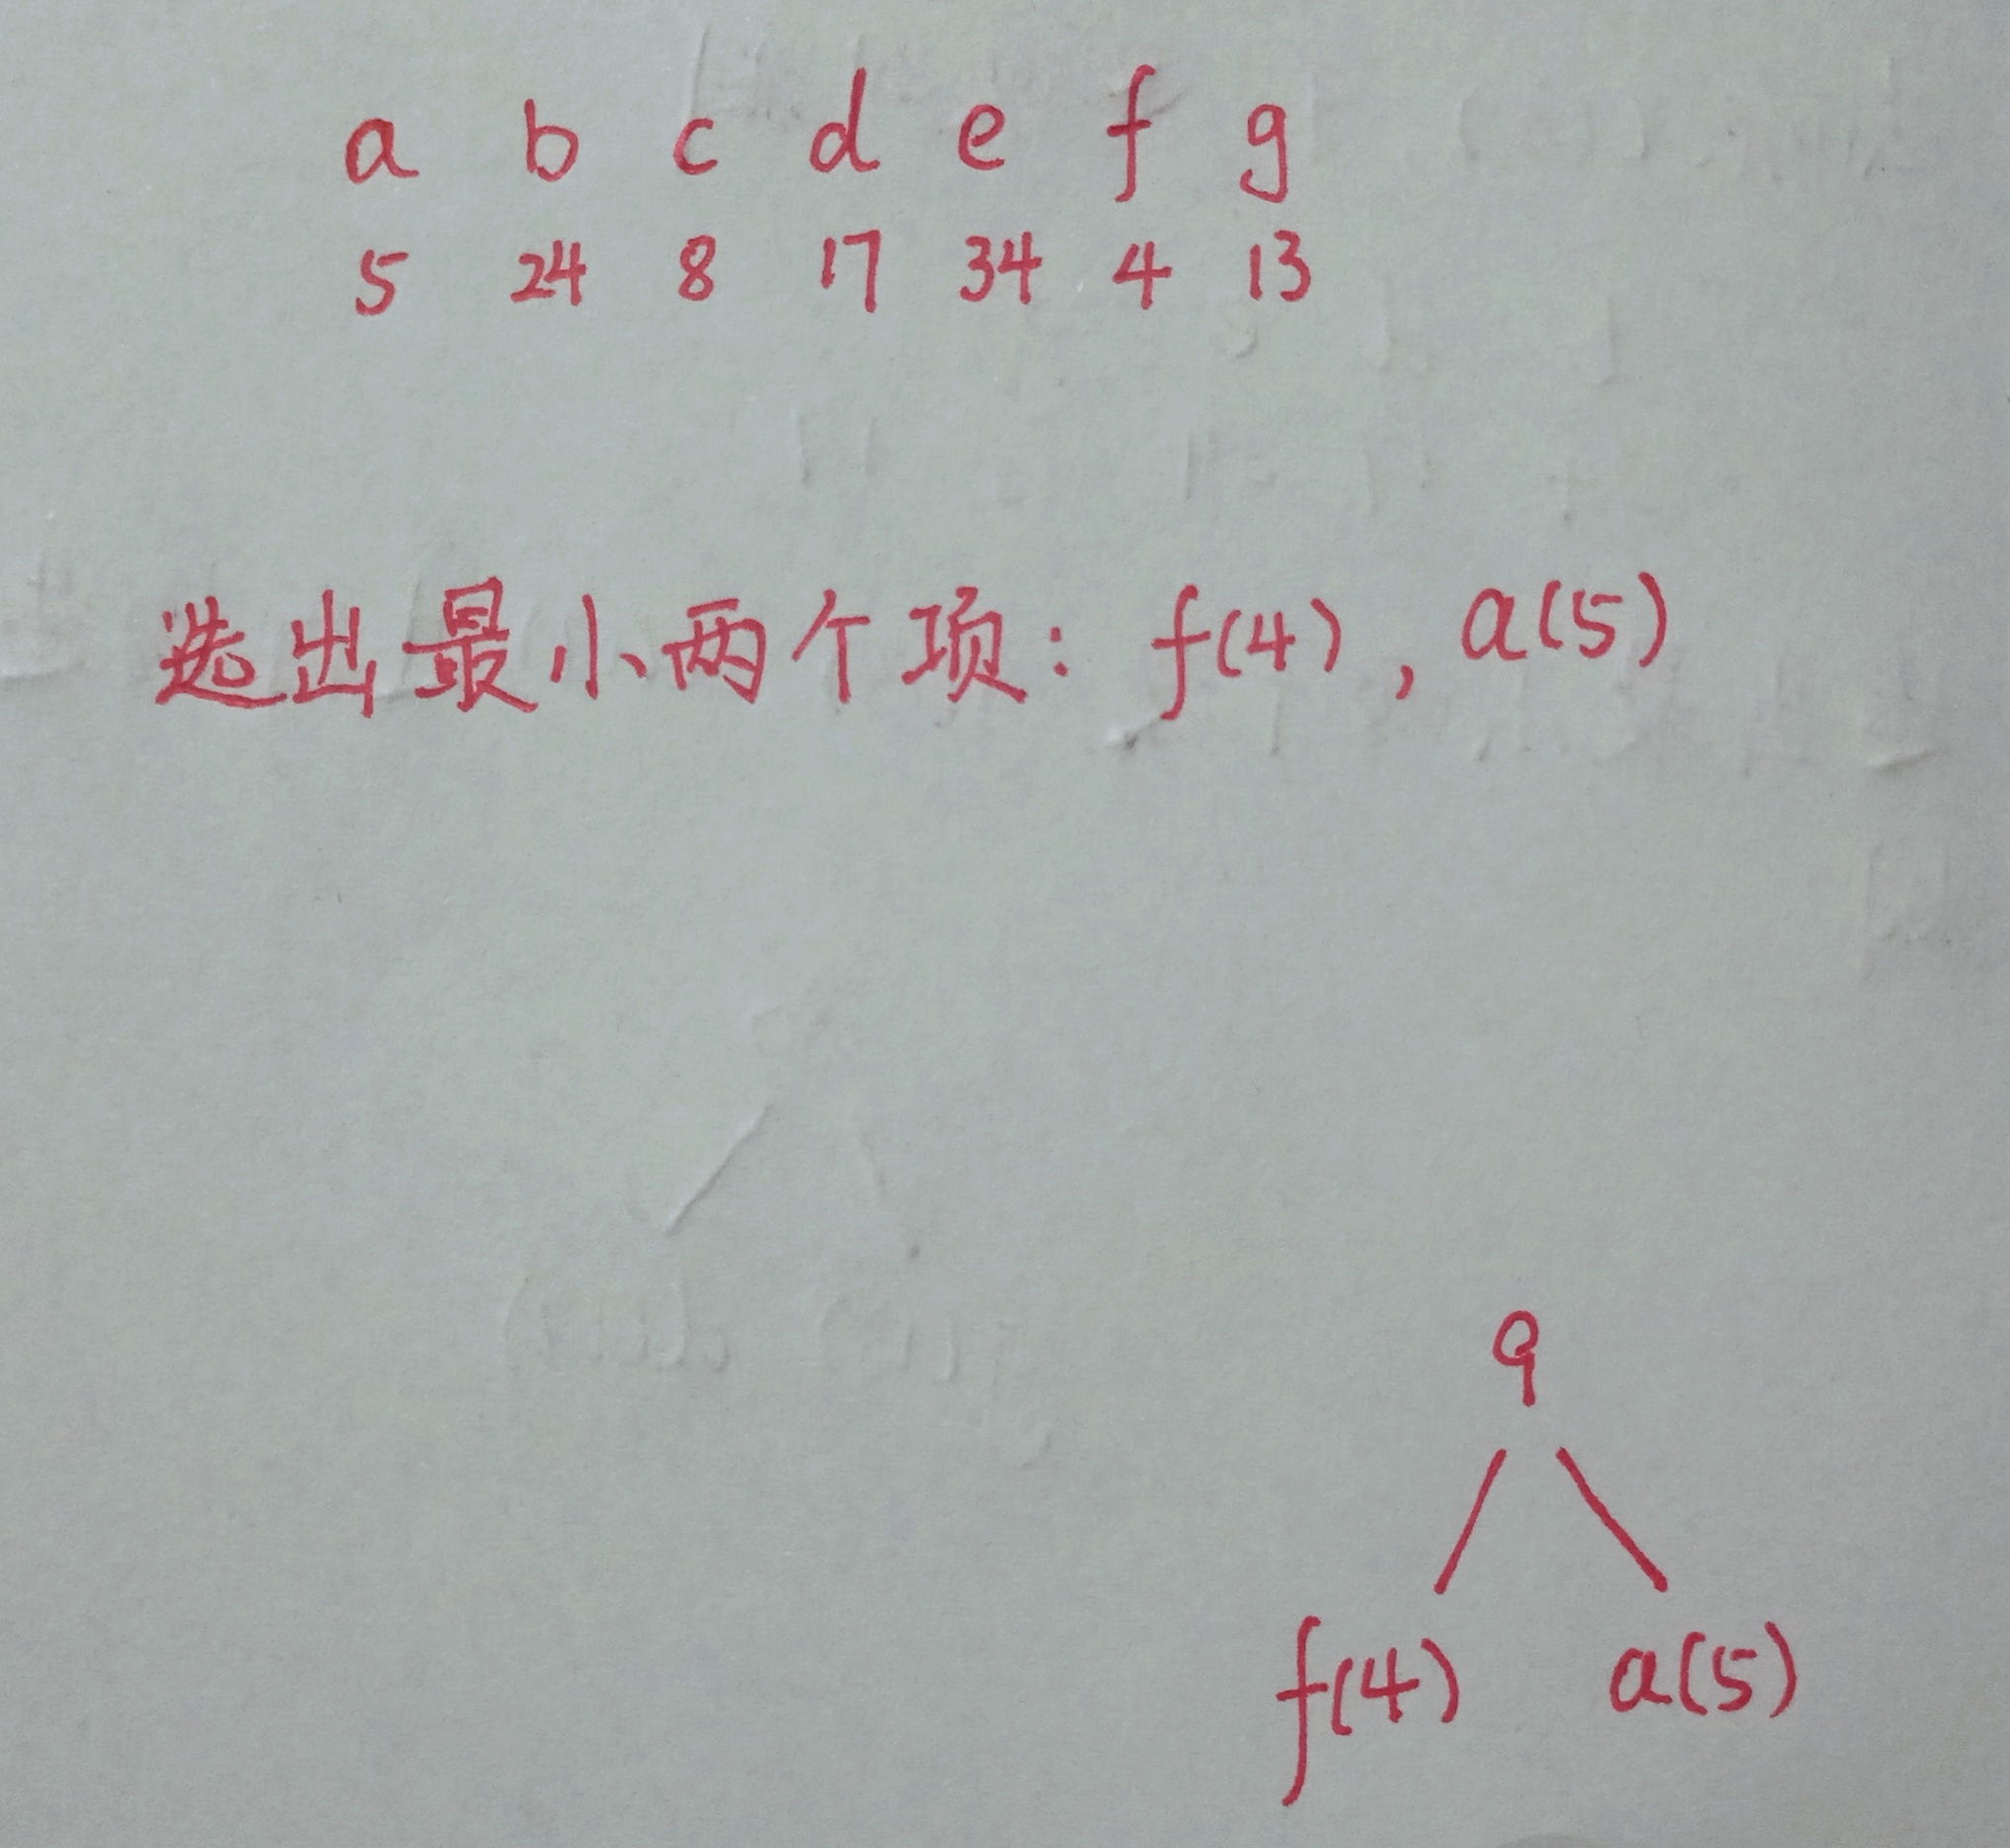 a b c d e f g
5 24 8 17 34 4 13
选出最小两个项: f(4), a(5)
9
f(4) a(5)